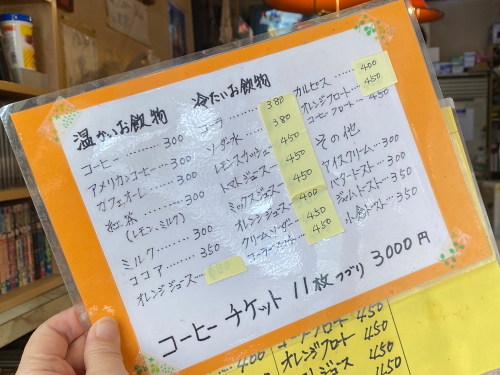 温かいお飲物
コーヒー……300
アメリカンコーヒー…300
カフェオーレ……300
紅茶……300
(レモン、ミルク)
ミルク………300
ココア………350
オレンジジュース…
冷たいお飲物
コーラ………380
ソーダ水……380
レモンスカッシュ…450
トマトジュース…450
ミックスジュース…450
オレンジジュース…400
クリームソーダー…450
450
カルピス……400
オレンジフロート…450
コーヒーフロート…450
その他
アイスクリーム…300
バタートースト…300
ジャムトースト…350
小倉トースト…350
コーヒーチケット 11枚つづり 3000円
400
フロート 450
オレンジフロート 450
ジュース 450
450